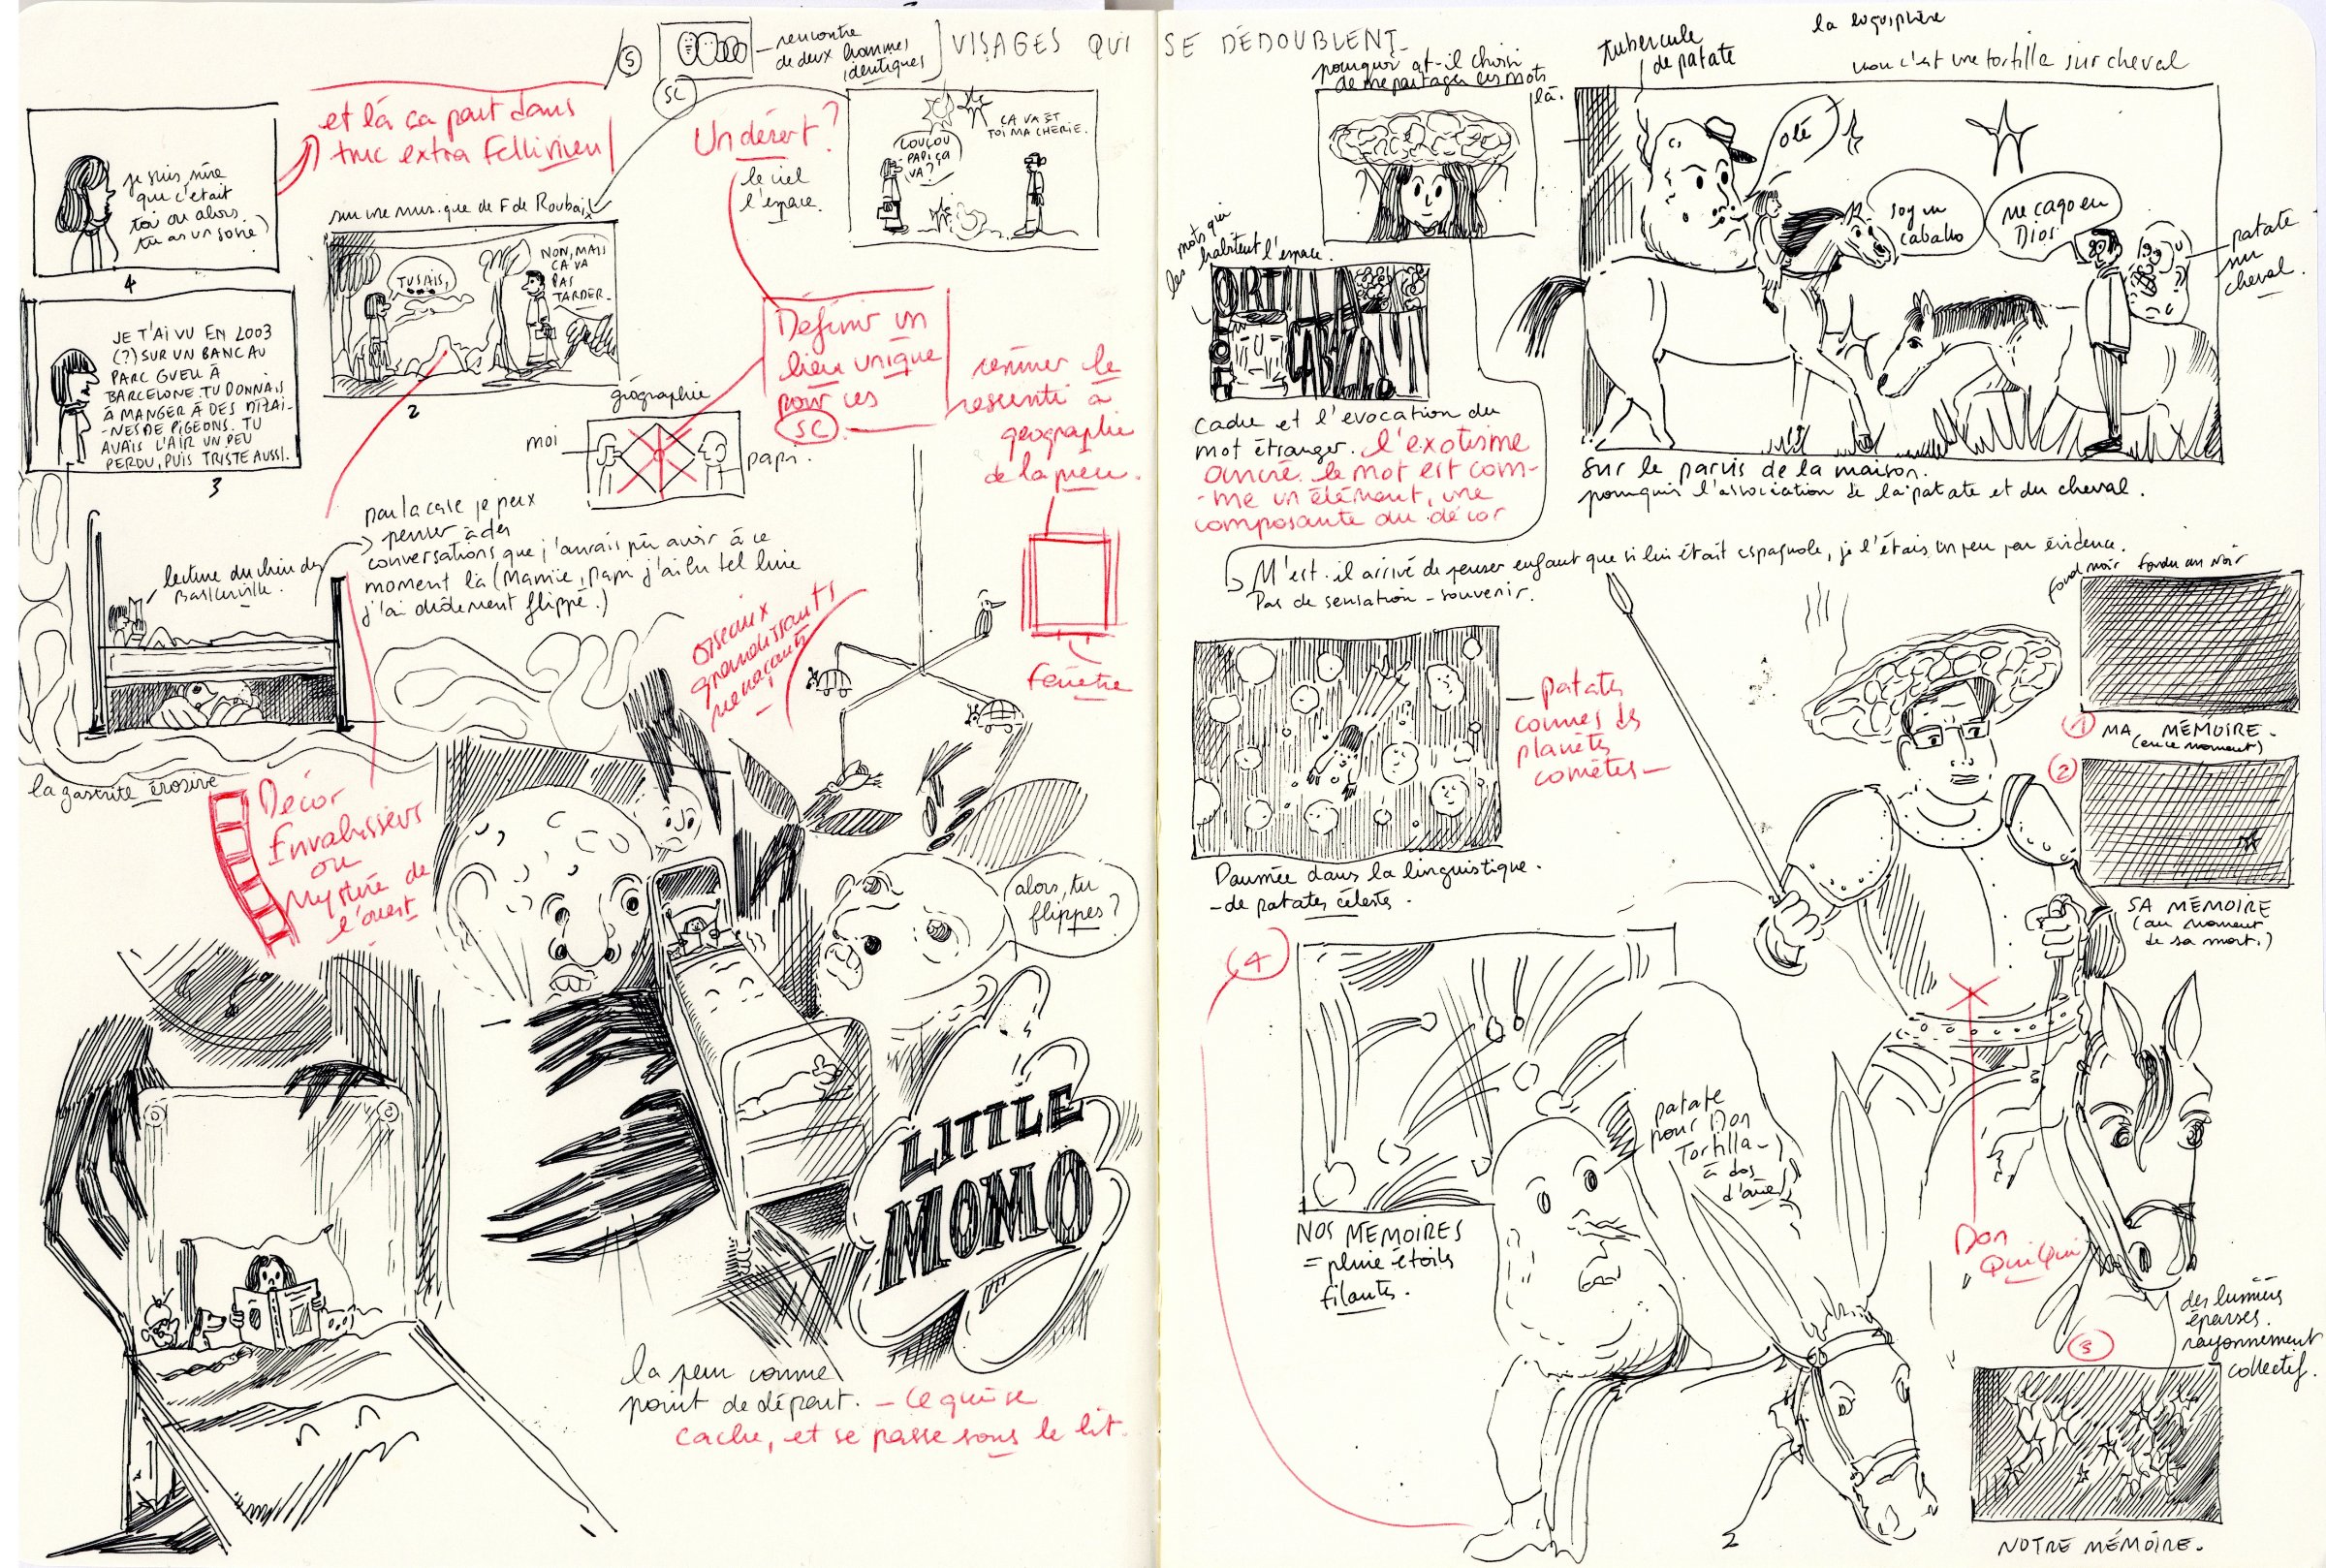 5
rencontre
de deux hommes
identiques
VISAGES QUI SE DÉDOUBLENT
SC
et là ça part dans
truc extra Fellinien
je suis sûre
que c'était
toi ou alors
tu as un sosie
4
JE T'AI VU EN 2003
(?) SUR UN BANC AU
PARC GUELL À
BARCELONE. TU DONNAIS
À MANGER À DES DIZAI-
-NES DE PIGEONS. TU
AVAIS L'AIR UN PEU
PERDU, PUIS TRISTE AUSSI.
3
sur une musique de F de Roubaix
TU SAIS,
NON, MAIS
ÇA VA
PAS
TARDER.
2
Un désert ?
le ciel
l'espace.
COUCOU
PAPI ÇA
VA ?
ÇA VA ET
TOI MA CHERIE.
Définir un
lieu unique
pour ces
SC
géographie
moi
papi.
ressenti à
géographie
de la peur.
fenêtre
pour la case je peux
penser à des
conversations que j'aurais pu avoir à ce
moment là (Mamie, Papi j'ai lu tel livre
j'ai drôlement flippé.)
lecture du chien des
Baskerville.
la gastrite érosive
oiseaux
grandissants
menaçants
Décor
Envahisseurs
ou
Mystère de
l'ouest
alors, tu
flippes ?
LITTLE
MOMO
la peur comme
point de départ. – ce qui se
cache, et se passe sous le lit.
pourquoi a-t-il choisi
de me partager ces mots
là.
tubercule
de patate
non c'est une tortilla sur cheval
olé
soy un
caballo
me cago en
Dios
patate
sur
cheval.
les mots qui
habitent l'espace.
cadre et l'évocation du
mot étranger. l'exotisme
ancré. le mot est com-
-me un élément, une
composante du décor
sur le parvis de la maison.
pourquoi l'association de la patate et du cheval.
M'est-il arrivé de penser enfant que si lui était espagnole, je l'étais un peu par évidence.
Pas de sensation – souvenir.
fond noir
fondu au noir
patates
comme des
planètes
comètes –
Paumée dans la linguistique.
– de patates célestes.
1
MA MÉMOIRE.
(en ce moment)
2
SA MÉMOIRE
(au moment
de sa mort.)
4
NOS MEMOIRES
= pluie étoiles
filantes.
patate
pour Don
Tortilla
à dos
d'âne
Don
Quiqui
des lumières
éparses.
rayonnement
collectif.
3
NOTRE MÉMOIRE.
2